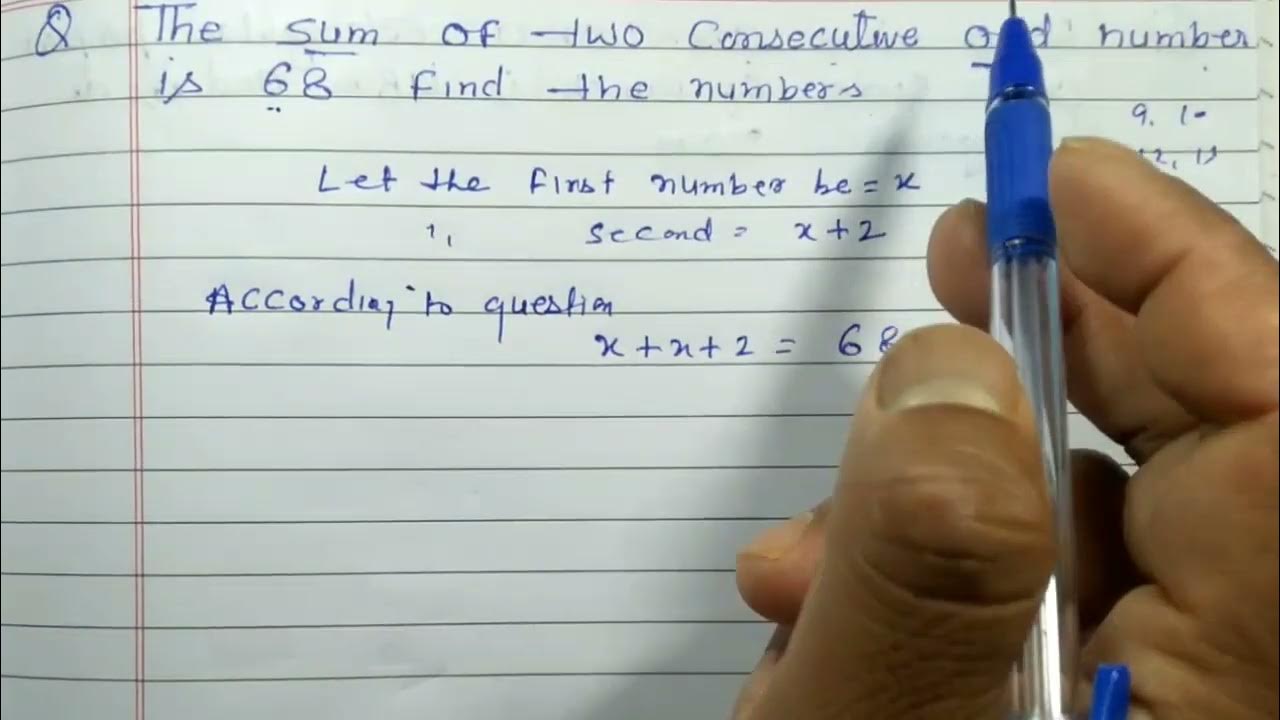 Q The sum of two consecutive odd number
is 68 find the numbers
9, 1
Let the first number be = x
" second = x + 2
According to question
x + x + 2 = 68